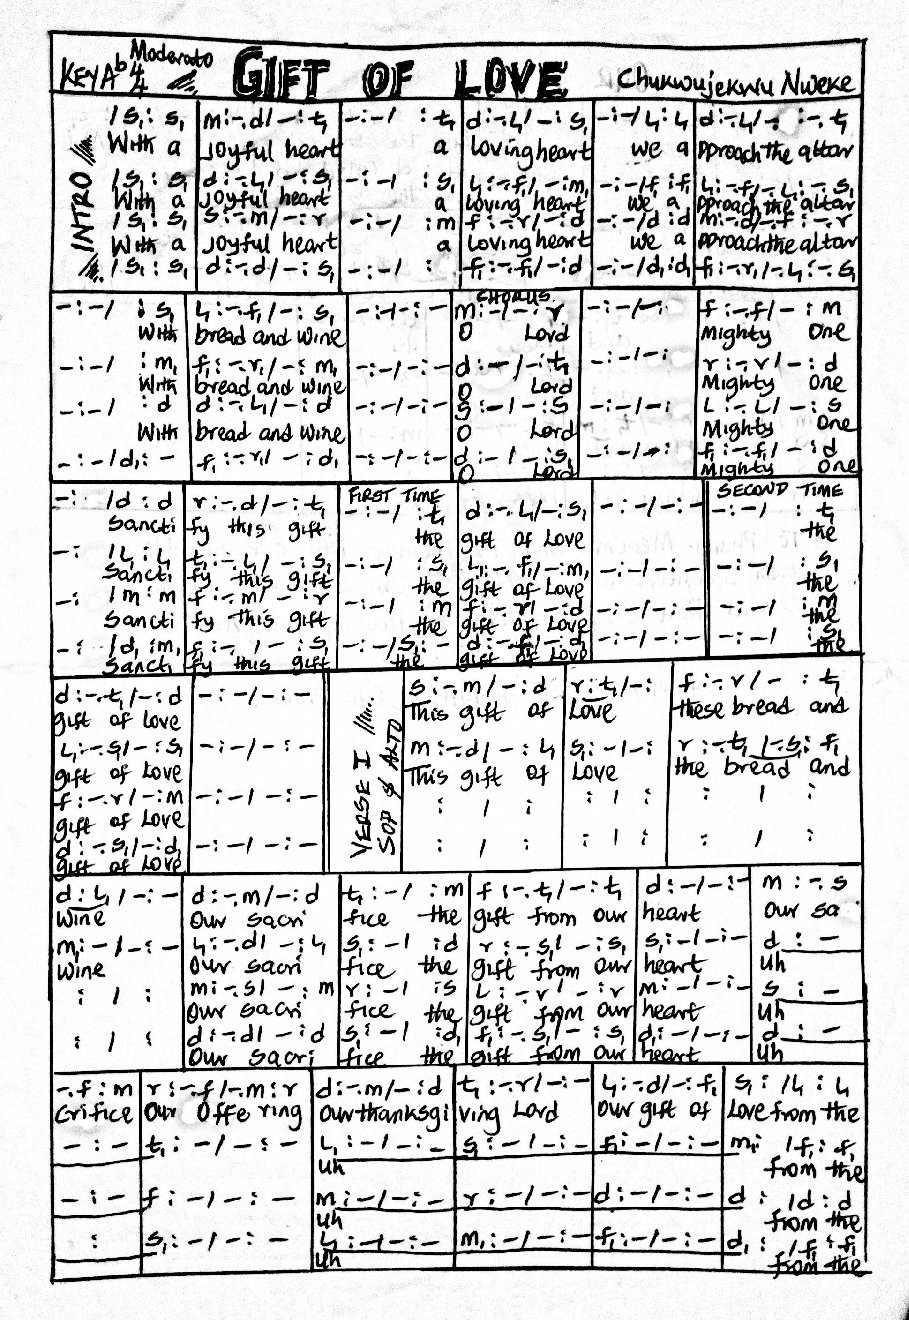 KEY Ab 4/4 Moderato GIFT OF LOVE Chukwujekwu Nweke
INTRO
/ s₁ : s₁ | m :-.d / - : t₁ | - : - / : t₁ | d :-.l₁ / - : s₁ | - : - / l₁ : l₁ | d :-.l₁ / - : -. t₁
With a joyful heart a loving heart we a pproach the altar
/ s₁ : s₁ | d :-.l₁ / - : s₁ | - : - / : s₁ | l₁ :-.f₁ / - : m₁ | - : - / f₁ : f₁ | l₁ :-.f₁ / - l₁ : -. s₁
With a joyful heart a loving heart we a pproach the altar
/ s₁ : s₁ | s :-.m / - : r | - : - / : m | f :-.r / - : d | - : - / d : d | m :-.d / -.f : -. r
With a joyful heart a loving heart we a pproach the altar
/ s₁ : s₁ | d :-.d / - : s₁ | - : - / : | f₁ :-.f₁ / - : d | - : - / d₁ : d₁ | f₁ :-.r₁ / - l₁ : -. s₁
- : - / : s₁ | l₁ :-.f₁ / - : s₁ | - : - / - : - | CHORUS m : - / - : r | - : - / - : | f :-.f / - : m
With bread and wine O Lord Mighty One
- : - / : m₁ | f₁ :-.r₁ / - : m₁ | - : - / - : - | d : - / - : t₁ | - : - / - : | r :-.r / - : d
With bread and wine O Lord Mighty One
- : - / : d | d :-.l₁ / - : d | - : - / - : - | s : - / - : s | - : - / - : | l :-.l / - : s
With bread and wine O Lord Mighty One
- : - / d₁ : - | f₁ :-.r₁ / - : d₁ | - : - / - : - | d : - / - : s₁ | - : - / - : | f₁ :-.f₁ / - : d
O Lord Mighty One
FIRST TIME SECOND TIME
- : / d : d | r :-.d / - : t₁ | - : - / : t₁ | d :-.l₁ / - : s₁ | - : - / - : - | - : - / : t₁
Sancti fy this gift the gift of love the
- : / l₁ : l₁ | t₁ :-.l₁ / - : s₁ | - : - / : s₁ | l₁ :-.f₁ / - : m₁ | - : - / - : - | - : - / : s₁
Sancti fy this gift the gift of love the
- : / m : m | f :-.m / - : r | - : - / : m | f :-.r / - : d | - : - / - : - | - : - / : m
Sancti fy this gift the gift of love the
- : / d₁ : m₁ | f₁ : -. / - : s₁ | - : - / s₁ : - | d :-.f₁ / - : d₁ | - : - / - : - | - : - / : s₁
Sancti fy this gift the gift of love the
VERSE I SOP & ALTO
d :-.t₁ / - : d | - : - / - : - | s :-.m / - : d | r : t₁ / - : | f :-.r / - : t₁
gift of love This gift of Love these bread and
l₁ :-.s₁ / - : s₁ | - : - / - : - | m :-.d / - : l₁ | s₁ : - / - : | r :-.t₁ / -.s₁ : f₁
gift of Love This gift of Love the bread and
f :-.r / - : m | - : - / - : - | : / : | : / : | : / :
gift of Love
d :-.s₁ / - : d₁ | - : - / - : - | : / : | : / : | : / :
gift of Love
d : l₁ / - : - | d :-.m / - : d | t₁ : - / : m | f :-.t₁ / - : t₁ | d : - / - : - | m : -. s
Wine Our sacri fice the gift from our heart Our sa
m₁ : - / - : - | l₁ :-.d / - : l₁ | s₁ : - / : d | r :-.s₁ / - : s₁ | s₁ : - / - : - | d : -
Wine Our sacri fice the gift from our heart Uh
: / : | m :-.s / - : m | r : - / : s | l :-.r / - : r | m : - / - : - | s : -
Our sacri fice the gift from our heart Uh
: / : | d :-.d / - : d | s₁ : - / : d₁ | f₁ :-.s₁ / - : s₁ | d₁ : - / - : - | d : -
Our sacri fice the gift from our heart Uh
-.f : m | r :-.f / -.m : r | d :-.m / - : d | t₁ :-.r / - : - | l₁ :-.d / - : f₁ | s₁ : / l₁ : l₁
Crifice Our Offe ring Our thanksgi ving Lord Our gift of Love from the
- : - | t₁ : - / - : - | l₁ : - / - : - | s₁ : - / - : - | f₁ : - / - : - | m₁ : / f₁ : f₁
Uh from the
- : - | f : - / - : - | m : - / - : - | r : - / - : - | d : - / - : - | d : / d : d
Uh from the
: | s₁ : - / - : - | l₁ : - / - : - | m₁ : - / - : - | f₁ : - / - : - | d₁ : / f₁ : f₁
Uh from the